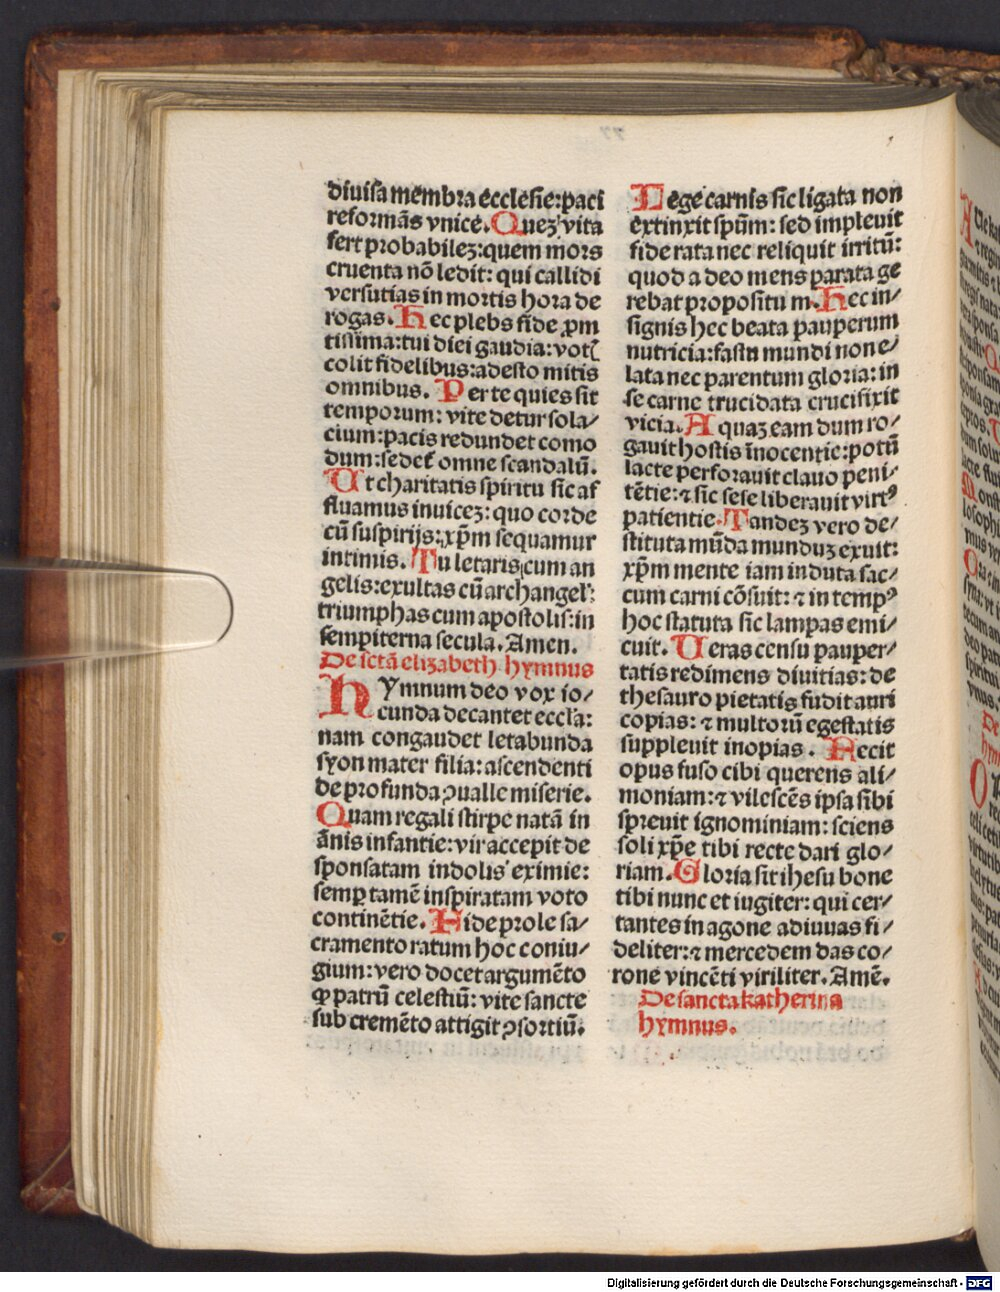 diuisa membra ecclesie: paci
reformãs vnice. Quez vita
fert probabilez: quem mors
cruenta nõ ledit: qui callidi
versutias in mortis hora de
rogas. Hec plebs fide ꝓm
tissima: tui diei gaudia: votꝭ
colit fidelibus: adesto mitis
omnibus. Per te quies sit
temporum: vite detur sola/
cium: pacis redundet como
dum: sedet̃ omne scandalũ.
Ut charitatis spiritu sic af
fluamus inuicez: quo corde
cũ suspirijs: xp̃m sequamur
intimis. Tu letaris cum an
gelis: exultas cũ archangel̛:
triumphas cum apostolis: in
sempiterna secula. Amen.
De sctã elizabeth hymnus
HYmnum deo vox io/
cunda decantet eccl̛a:
nam congaudet letabunda
syon mater filia: ascendenti
de profunda ꝯualle miserie.
Quam regali stirpe natã in
ãnis infantie: vir accepit de
sponsatam indolis eximie:
semꝑ tamẽ inspiratam voto
continẽtie. Fide prole sa/
cramento ratum hoc coniu/
gium: vero docet argumẽto
ꝙ patrũ celestiũ: vite sancte
sub cremẽto attigit ꝯsortiũ.
Lege carnis sic ligata non
extinxit spũm: sed impleuit
fide rata nec reliquit irritũ:
quod a deo mens parata ge
rebat propositu m. Hec in/
signis hec beata pauperum
nutricia: fastu mundi non e/
lata nec parentum gloria: in
se carne trucidata crucifixit
vicia. A quaz eam dum ro/
gauit hostis ĩnocentie: potũ
lacte perforauit clauo peni/
tẽtie: ⁊ sic sese liberauit virtꝰ
patientie. Tandez vero de/
stituta mũda munduz exuit:
xp̃m mente iam induta sac/
cum carni cõsuit: ⁊ in tempꝰ
hoc statuta sic lampas emi/
cuit. Ueras censu pauper/
tatis redimens diuitias: de
thesauro pietatis fudit auri
copias: ⁊ multorũ egestatis
suppleuit inopias. Fecit
opus fuso cibi querens ali/
moniam: ⁊ vilescẽs ipsa sibi
spreuit ignominiam: sciens
soli xp̃e tibi recte dari glo/
riam. Gloria sit ihesu bone
tibi nunc et iugiter: qui cer/
tantes in agone adiuuas fi/
deliter: ⁊ mercedem das co/
rone vincẽti viriliter. Amẽ.
De sancta katherina
hymnus.
Digitalisierung gefördert durch die Deutsche Forschungsgemeinschaft - DFG